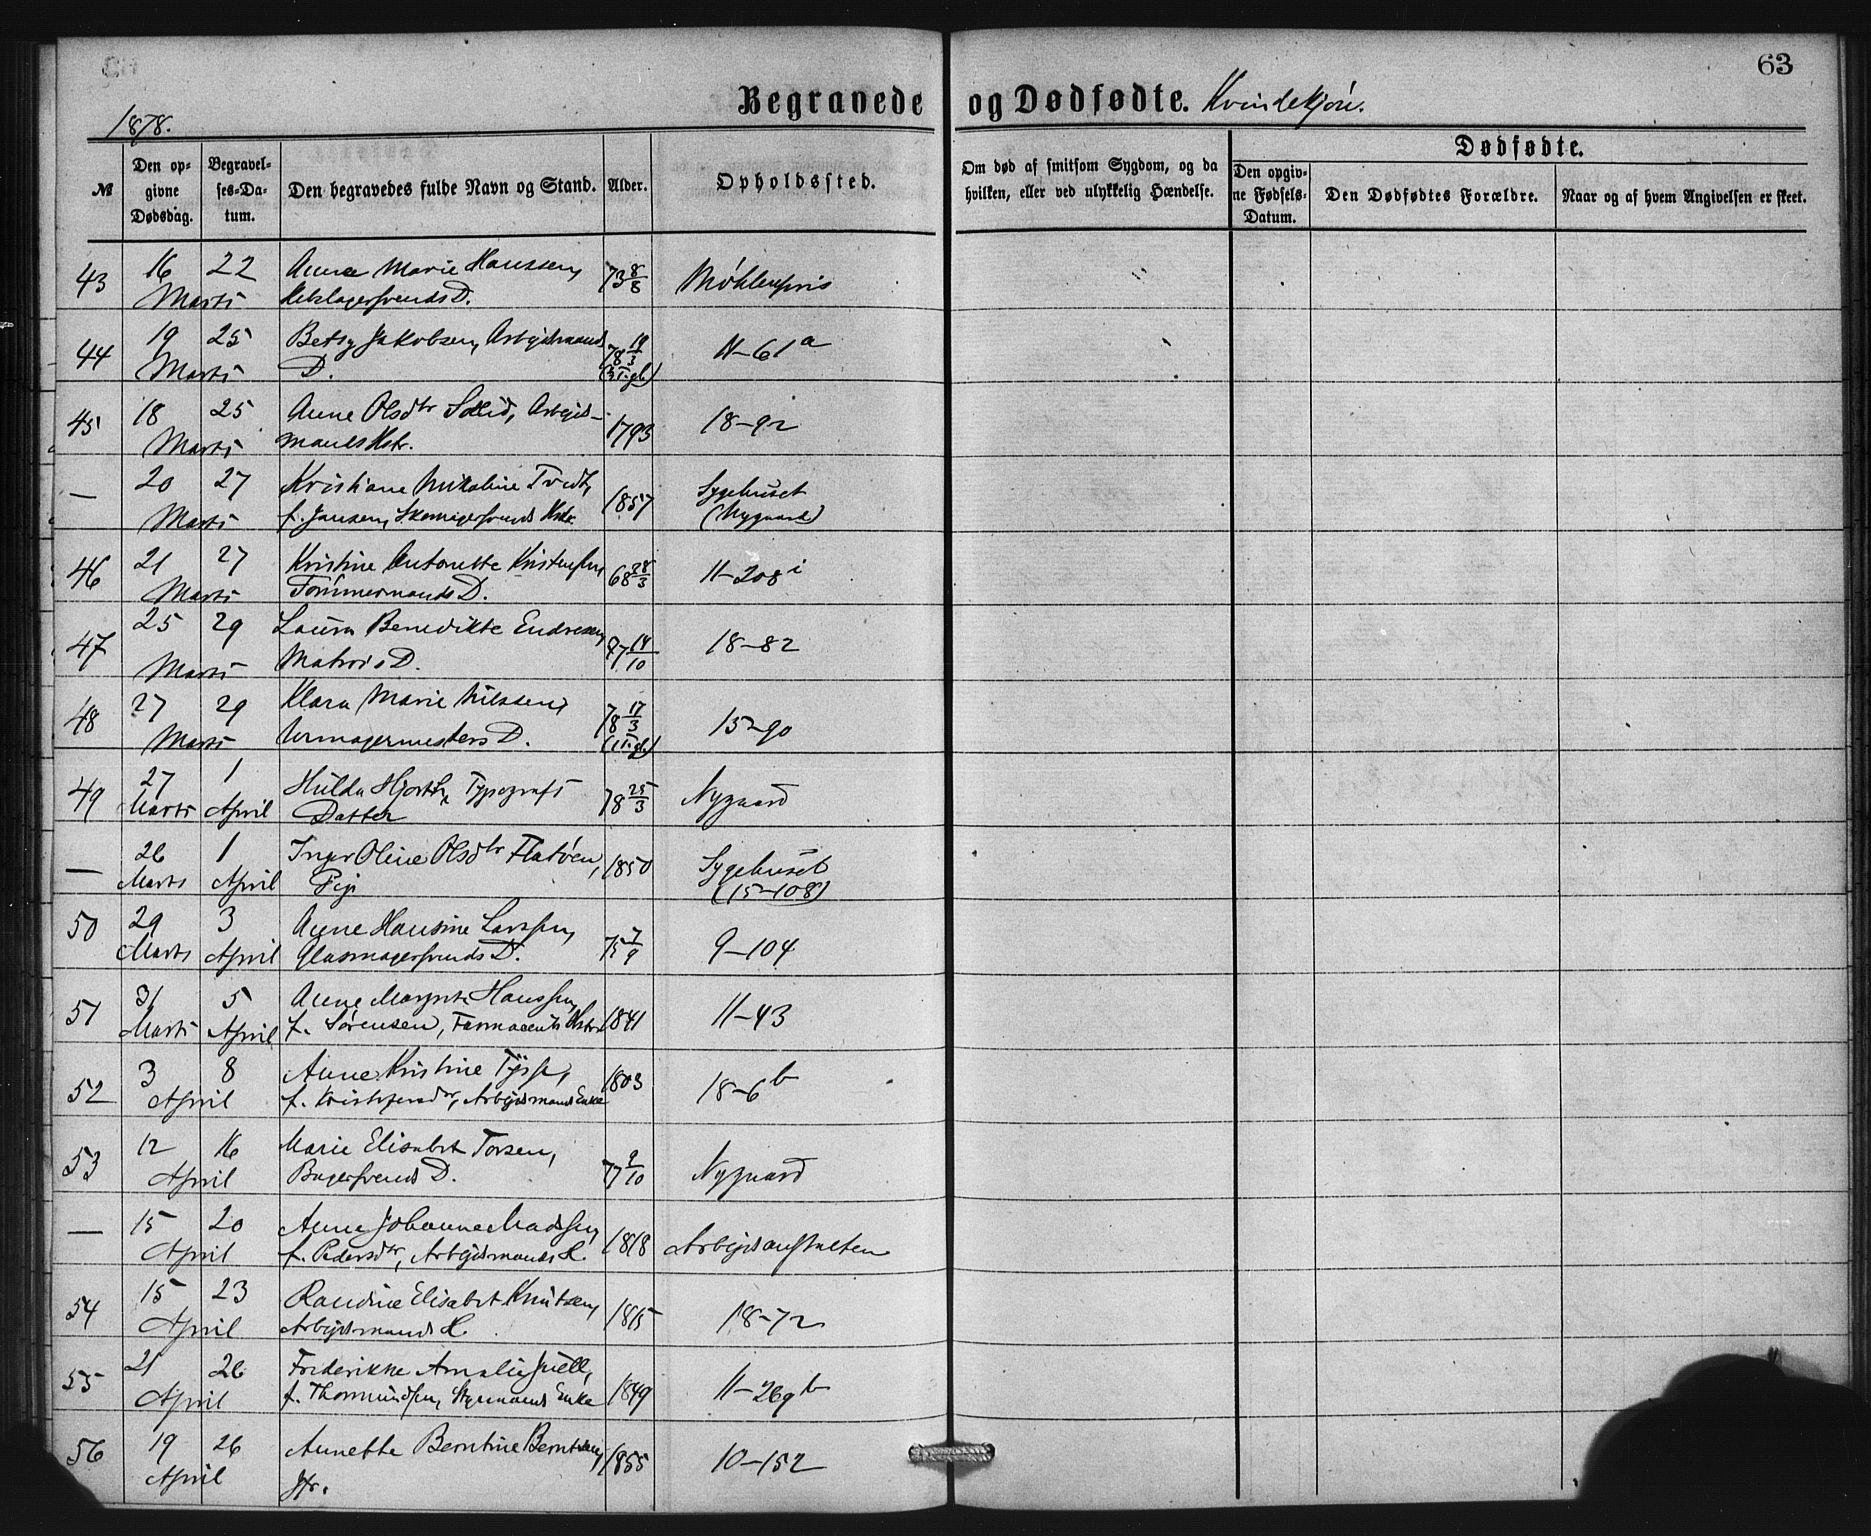 63
Begravede og Dødfødte. Kvindekjön.
1878.
№
Den opgivne Dødsdag.
Begravelses-Datum.
Den begravedes fulde Navn og Stand.
Alder.
Opholdssted.
Om død af smitsom Sygdom, og da hvilken, eller ved ulykkelig Hændelse.
Dødfødte.
Den opgivne Fødsels-Datum.
Den Dødfødtes Forældre.
Naar og af hvem Angivelsen er skeet.
43 16 22 Anna Marie Hanssen, 73 8/8 Møhlenpris
Marts Rebslagersvends D.
44 19 25 Betsy Jakobsen, Arbejdsmands 78 19/3 11-61a
Marts D. gl.)
45 18 25 Anne Olsdtr Solid, Arbejds- 1793 18-92
Marts mands Hstr.
— 20 27 Kristiane Nikoline Tvedt, 1857 Sygehuset
Marts f. Jansen, Skomagersvends Hstr. (Nygaard)
46 21 27 Kristine Antonette Kristensen, 68 28/3 11-208i
Marts Tömmermands D.
47 25 29 Laura Benedikte Endresen, 77 14/10 18-82
Marts Matros D.
48 27 29 Klara Marie Nilssen, 78 17/3 15-90
Marts Urmagermesters D. (1 T. gl.)
49 27 1 Hulda Hjorth, Typografs 78 25/3 Nygaard
Marts April Datter
— 26 1 Inger Oline Olsdtr Flatöen, 1850 Sygehuset
Marts April Pige (15-108)
50 29 3 Anne Hansine Larssen, 75 7/9 9-104
Marts April Glasmagersvends D.
51 31 5 Anne Margrete Hanssen, 1841 11-43
Marts April f. Sørensen, Farmaceuts Hstr.
52 3 8 Anne Kristine Tysse, 1803 18-6b
April f. Kristofersdtr, Arbejdsmands Enke
53 12 16 Marie Elisabet Torsen, 77 9/10 Nygaard
April Bagersvends D.
— 15 20 Anne Johanne Madssen, 1818 Arbejdsanstalten
April f. Pedersdtr, Arbejdsmands H.
54 15 23 Randine Elisabet Knutsen, 1815 18-72
April Arbejdsmands H.
55 21 26 Friderikke Amalie Juell, 1849 11-269b
April f. Thormundsen, Styrmands Enke
56 19 26 Annette Berntine Berntsen, 1855 10-152
April Jfr.